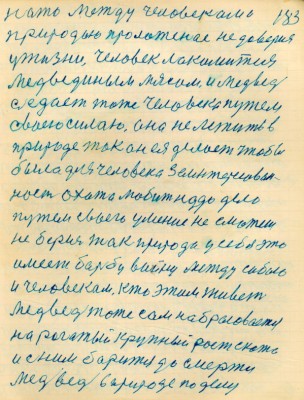 нато между человекам и 133
природою проложенае не доверия
у жизни, человек лакомитея
медвединым мясом, и медвед
следает тоже человека путем
своею силаю, она не лежить в
природе так он ея делает чтобы
была для человека заинтересован
ност охота мобит надо дело
путем своего умение не сможеш
не бериш так природа у себя это
имеет барбу вайну между сабою
и человекам, кто этим живет
медвед тоже сам набрасоваетя
на рогатый крупный рост скота
и с ним баритя до смерти
медвед в природе по делу